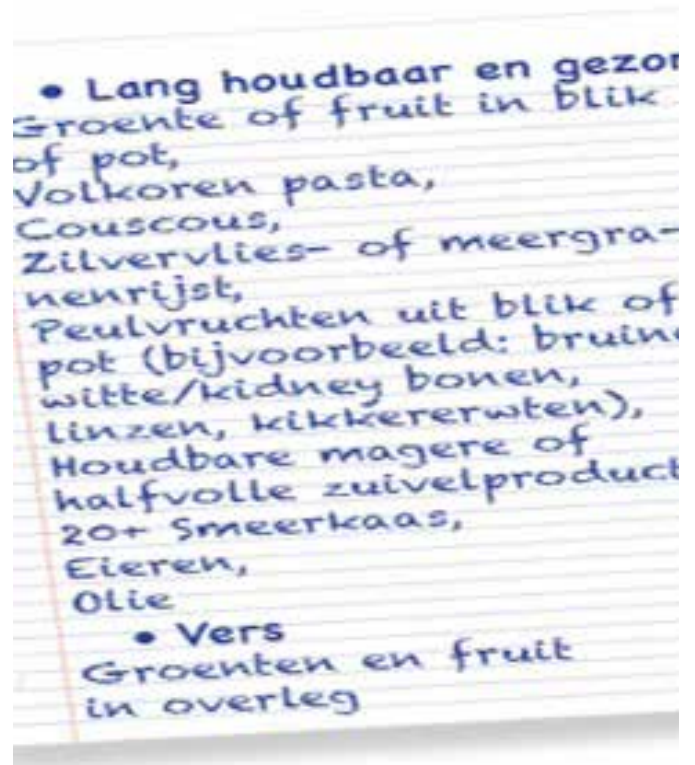 • Lang houdbaar en gezon
Groente of fruit in blik
of pot,
Volkoren pasta,
Couscous,
Zilvervlies- of meergra-
nenrijst,
Peulvruchten uit blik of
pot (bijvoorbeeld: bruine
witte/kidney bonen,
linzen, kikkererwten),
Houdbare magere of
halfvolle zuivelproduct
20+ Smeerkaas,
Eieren,
Olie
• Vers
Groenten en fruit
in overleg